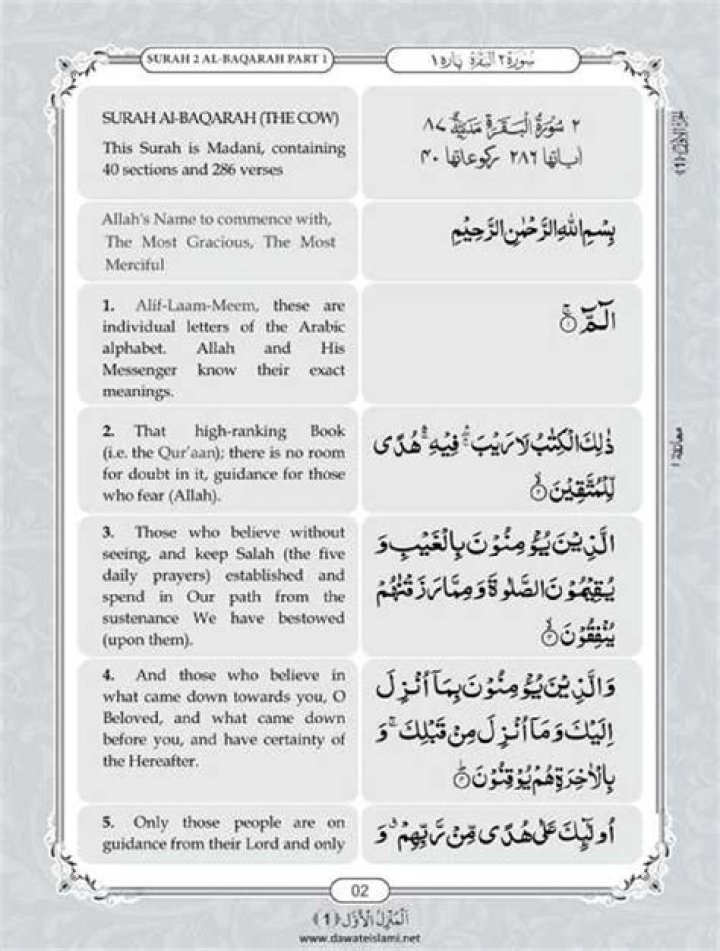 SURAH 2 AL-BAQARAH PART 1
سُوْرَةُ ٢ الْبَقَرَةِ پارہ ١
SURAH Al-BAQARAH (THE COW)
This Surah is Madani, containing
40 sections and 286 verses
٢ سُوْرَةُ الْبَقَرَةِ مَدَنِيَّةٌ ٨٧
اٰيَاتُهَا ٢٨٦ رُكُوْعَاتُهَا ٤٠
Allah's Name to commence with,
The Most Gracious, The Most
Merciful
بِسْمِ اللّٰهِ الرَّحْمٰنِ الرَّحِيْمِ
1. Alif-Laam-Meem, these are
individual letters of the Arabic
alphabet. Allah and His
Messenger know their exact
meanings.
الٓمّٓ ۚ﴿١﴾
2. That high-ranking Book
(i.e. the Qur'aan); there is no room
for doubt in it, guidance for those
who fear (Allah).
ذٰلِكَ الْكِتٰبُ لَا رَيْبَ ۛ فِيْهِ ۛ هُدًى
لِّلْمُتَّقِيْنَ ۙ﴿٢﴾
3. Those who believe without
seeing, and keep Salah (the five
daily prayers) established and
spend in Our path from the
sustenance We have bestowed
(upon them).
الَّذِيْنَ يُؤْمِنُوْنَ بِالْغَيْبِ وَ
يُقِيْمُوْنَ الصَّلٰوةَ وَمِمَّا رَزَقْنٰهُمْ
يُنْفِقُوْنَ ۙ﴿٣﴾
4. And those who believe in
what came down towards you, O
Beloved, and what came down
before you, and have certainty of
the Hereafter.
وَالَّذِيْنَ يُؤْمِنُوْنَ بِمَآ اُنْزِلَ
اِلَيْكَ وَمَآ اُنْزِلَ مِنْ قَبْلِكَ ۚ وَ
بِالْاٰخِرَةِ هُمْ يُوْقِنُوْنَ ؕ﴿٤﴾
5. Only those people are on
guidance from their Lord and only
اُولٰٓئِكَ عَلٰى هُدًى مِّنْ رَّبِّهِمْ ۗ وَ
الجزء الاول (1)
معانقة ١
02
اَلْمَنْزِلُ الْاَوَّلُ ﴿1﴾
www.dawateislami.net